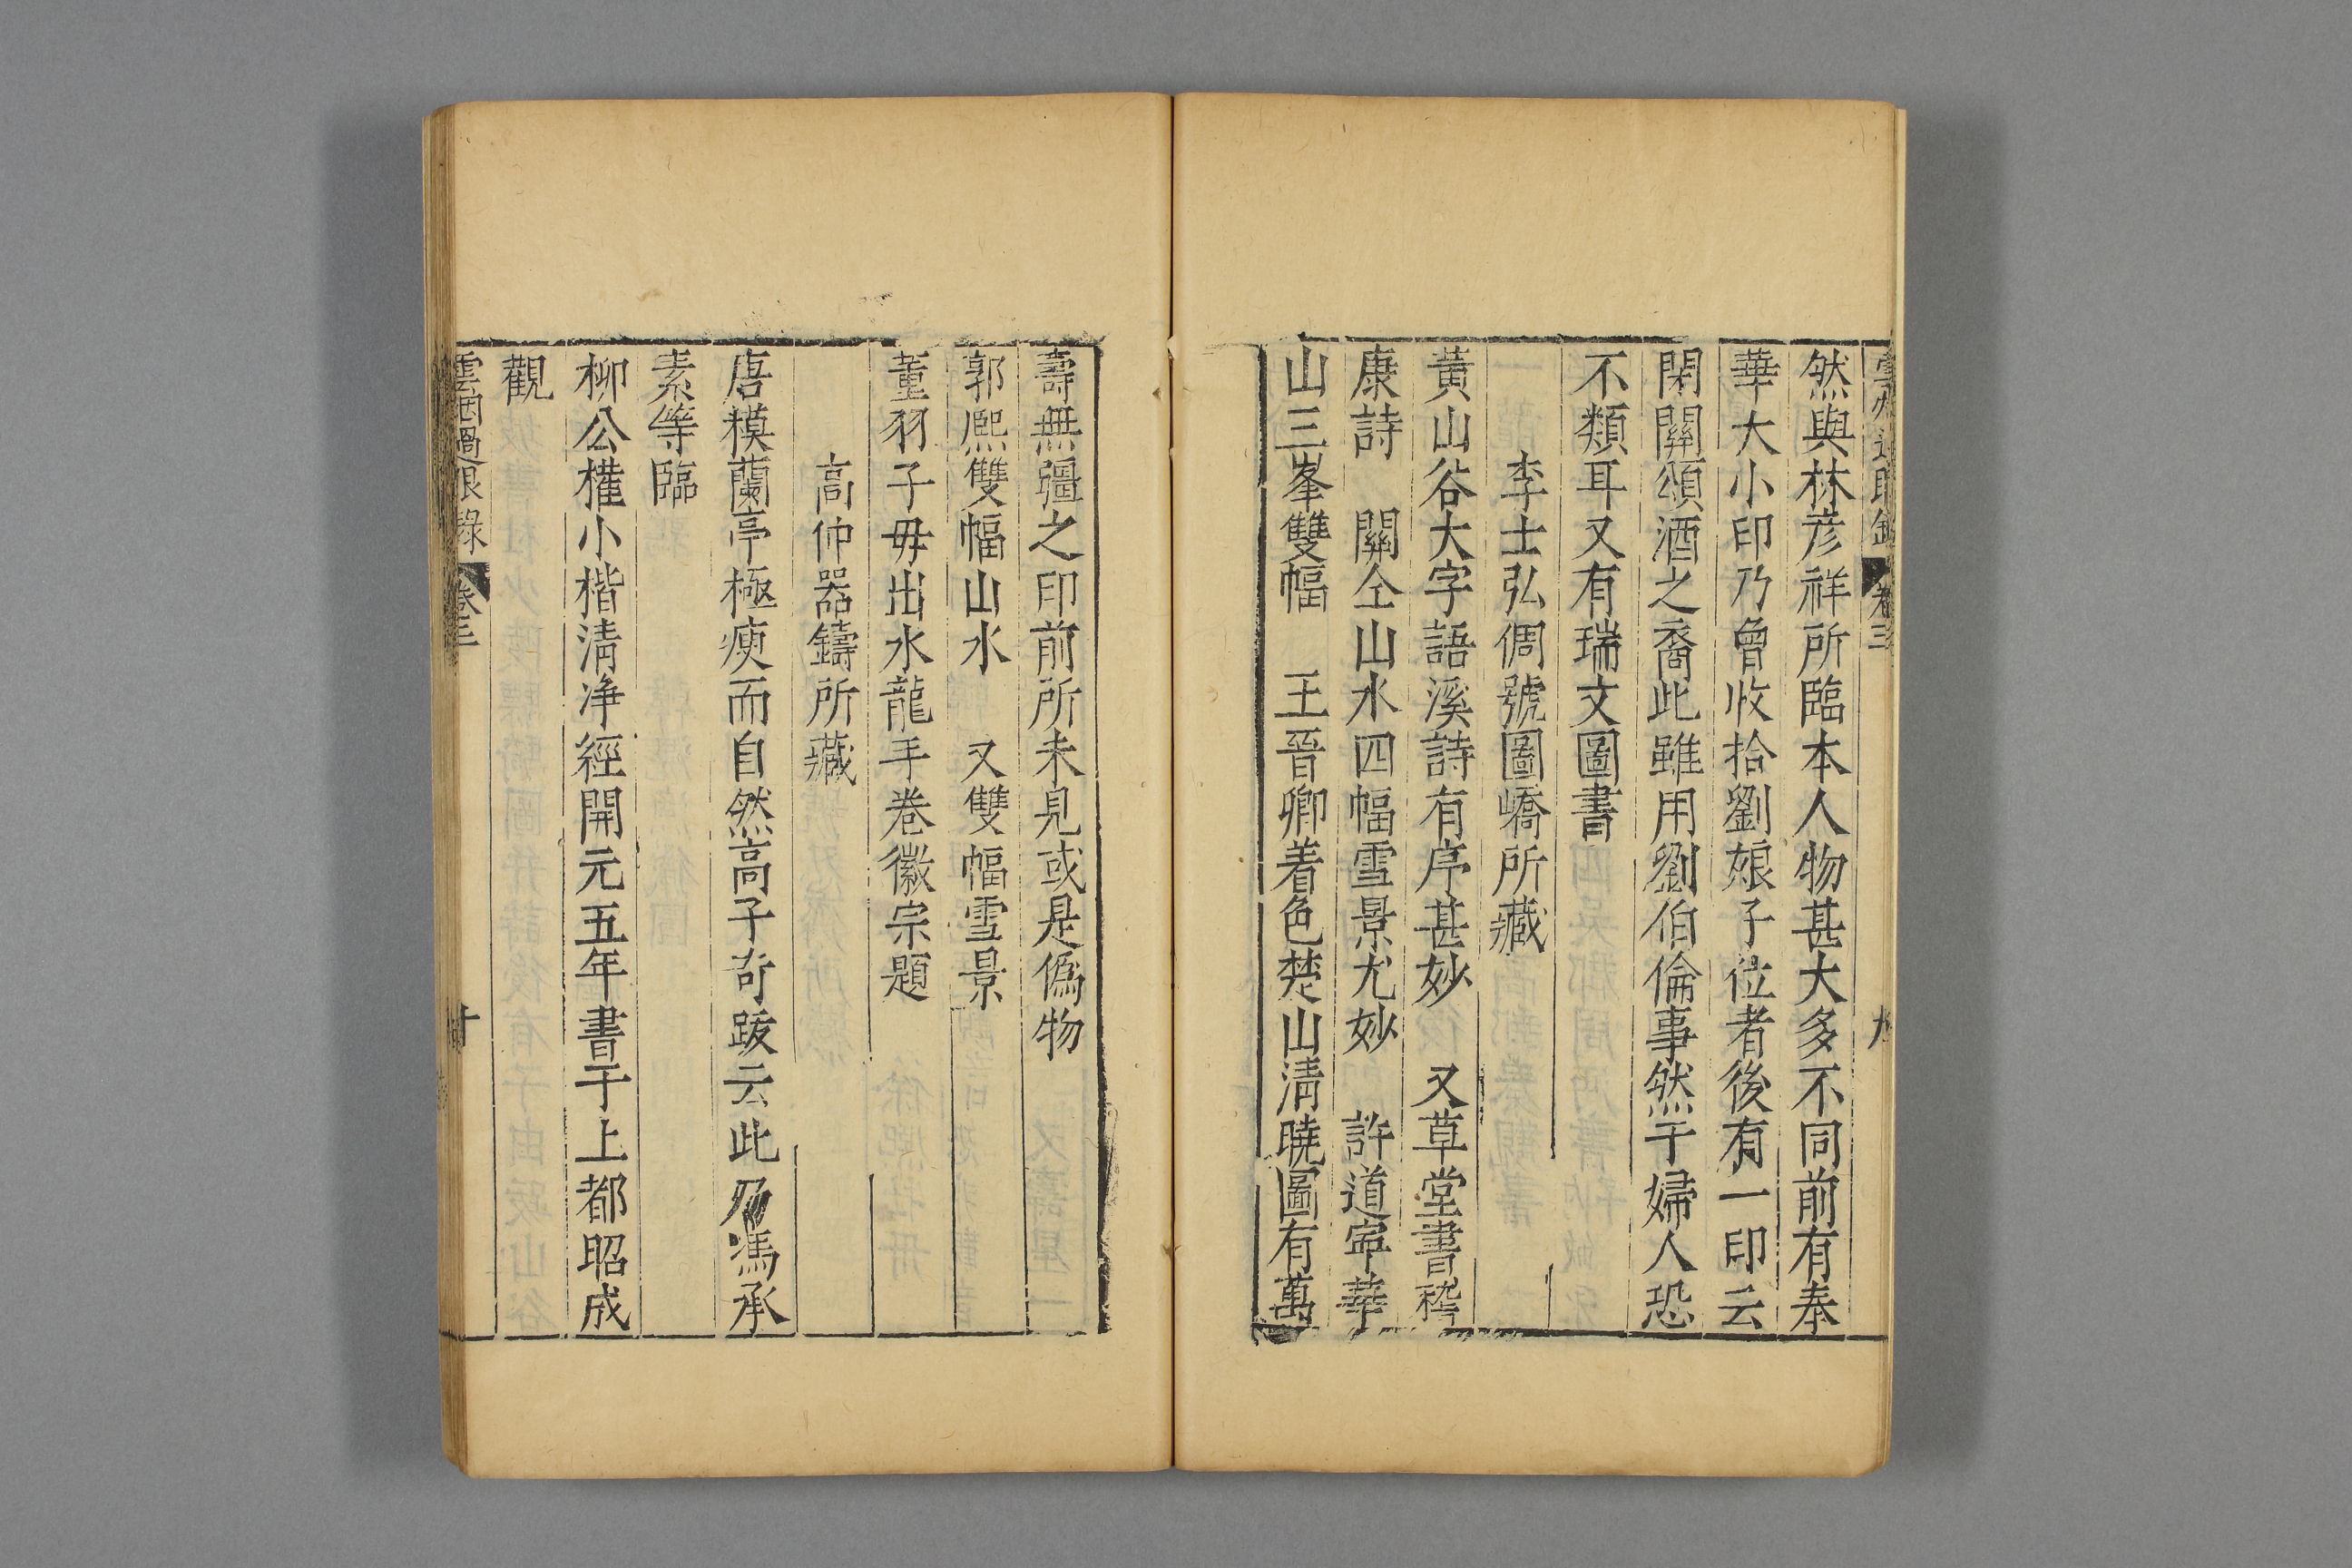 雲烟過眼錄 卷三 九
然與林彦祥所臨本人物甚大多不同前有奉
華大小印乃曾收拾劉娘子位者後有一印云
閑關頌酒之裔此雖用劉伯倫事然于婦人恐
不類耳又有瑞文圖書
李士弘倜號圖嶠所藏
黄山谷大字語溪詩有序甚妙 又草堂書嵇
康詩 關仝山水四幅雪景尤妙 許道寧華
山三峯雙幅 王晉卿着色楚山清曉圖有萬
壽無疆之印前所未見或是僞物
郭熈雙幅山水 又雙幅雪景
董羽子毋出水龍手卷徽宗題
高仲器鑄所藏
唐模蘭亭極瘦而自然高子奇跋云此乃馮承
素等臨
柳公權小楷清净經開元五年書于上都昭成
觀
雲烟過眼錄 卷三 十